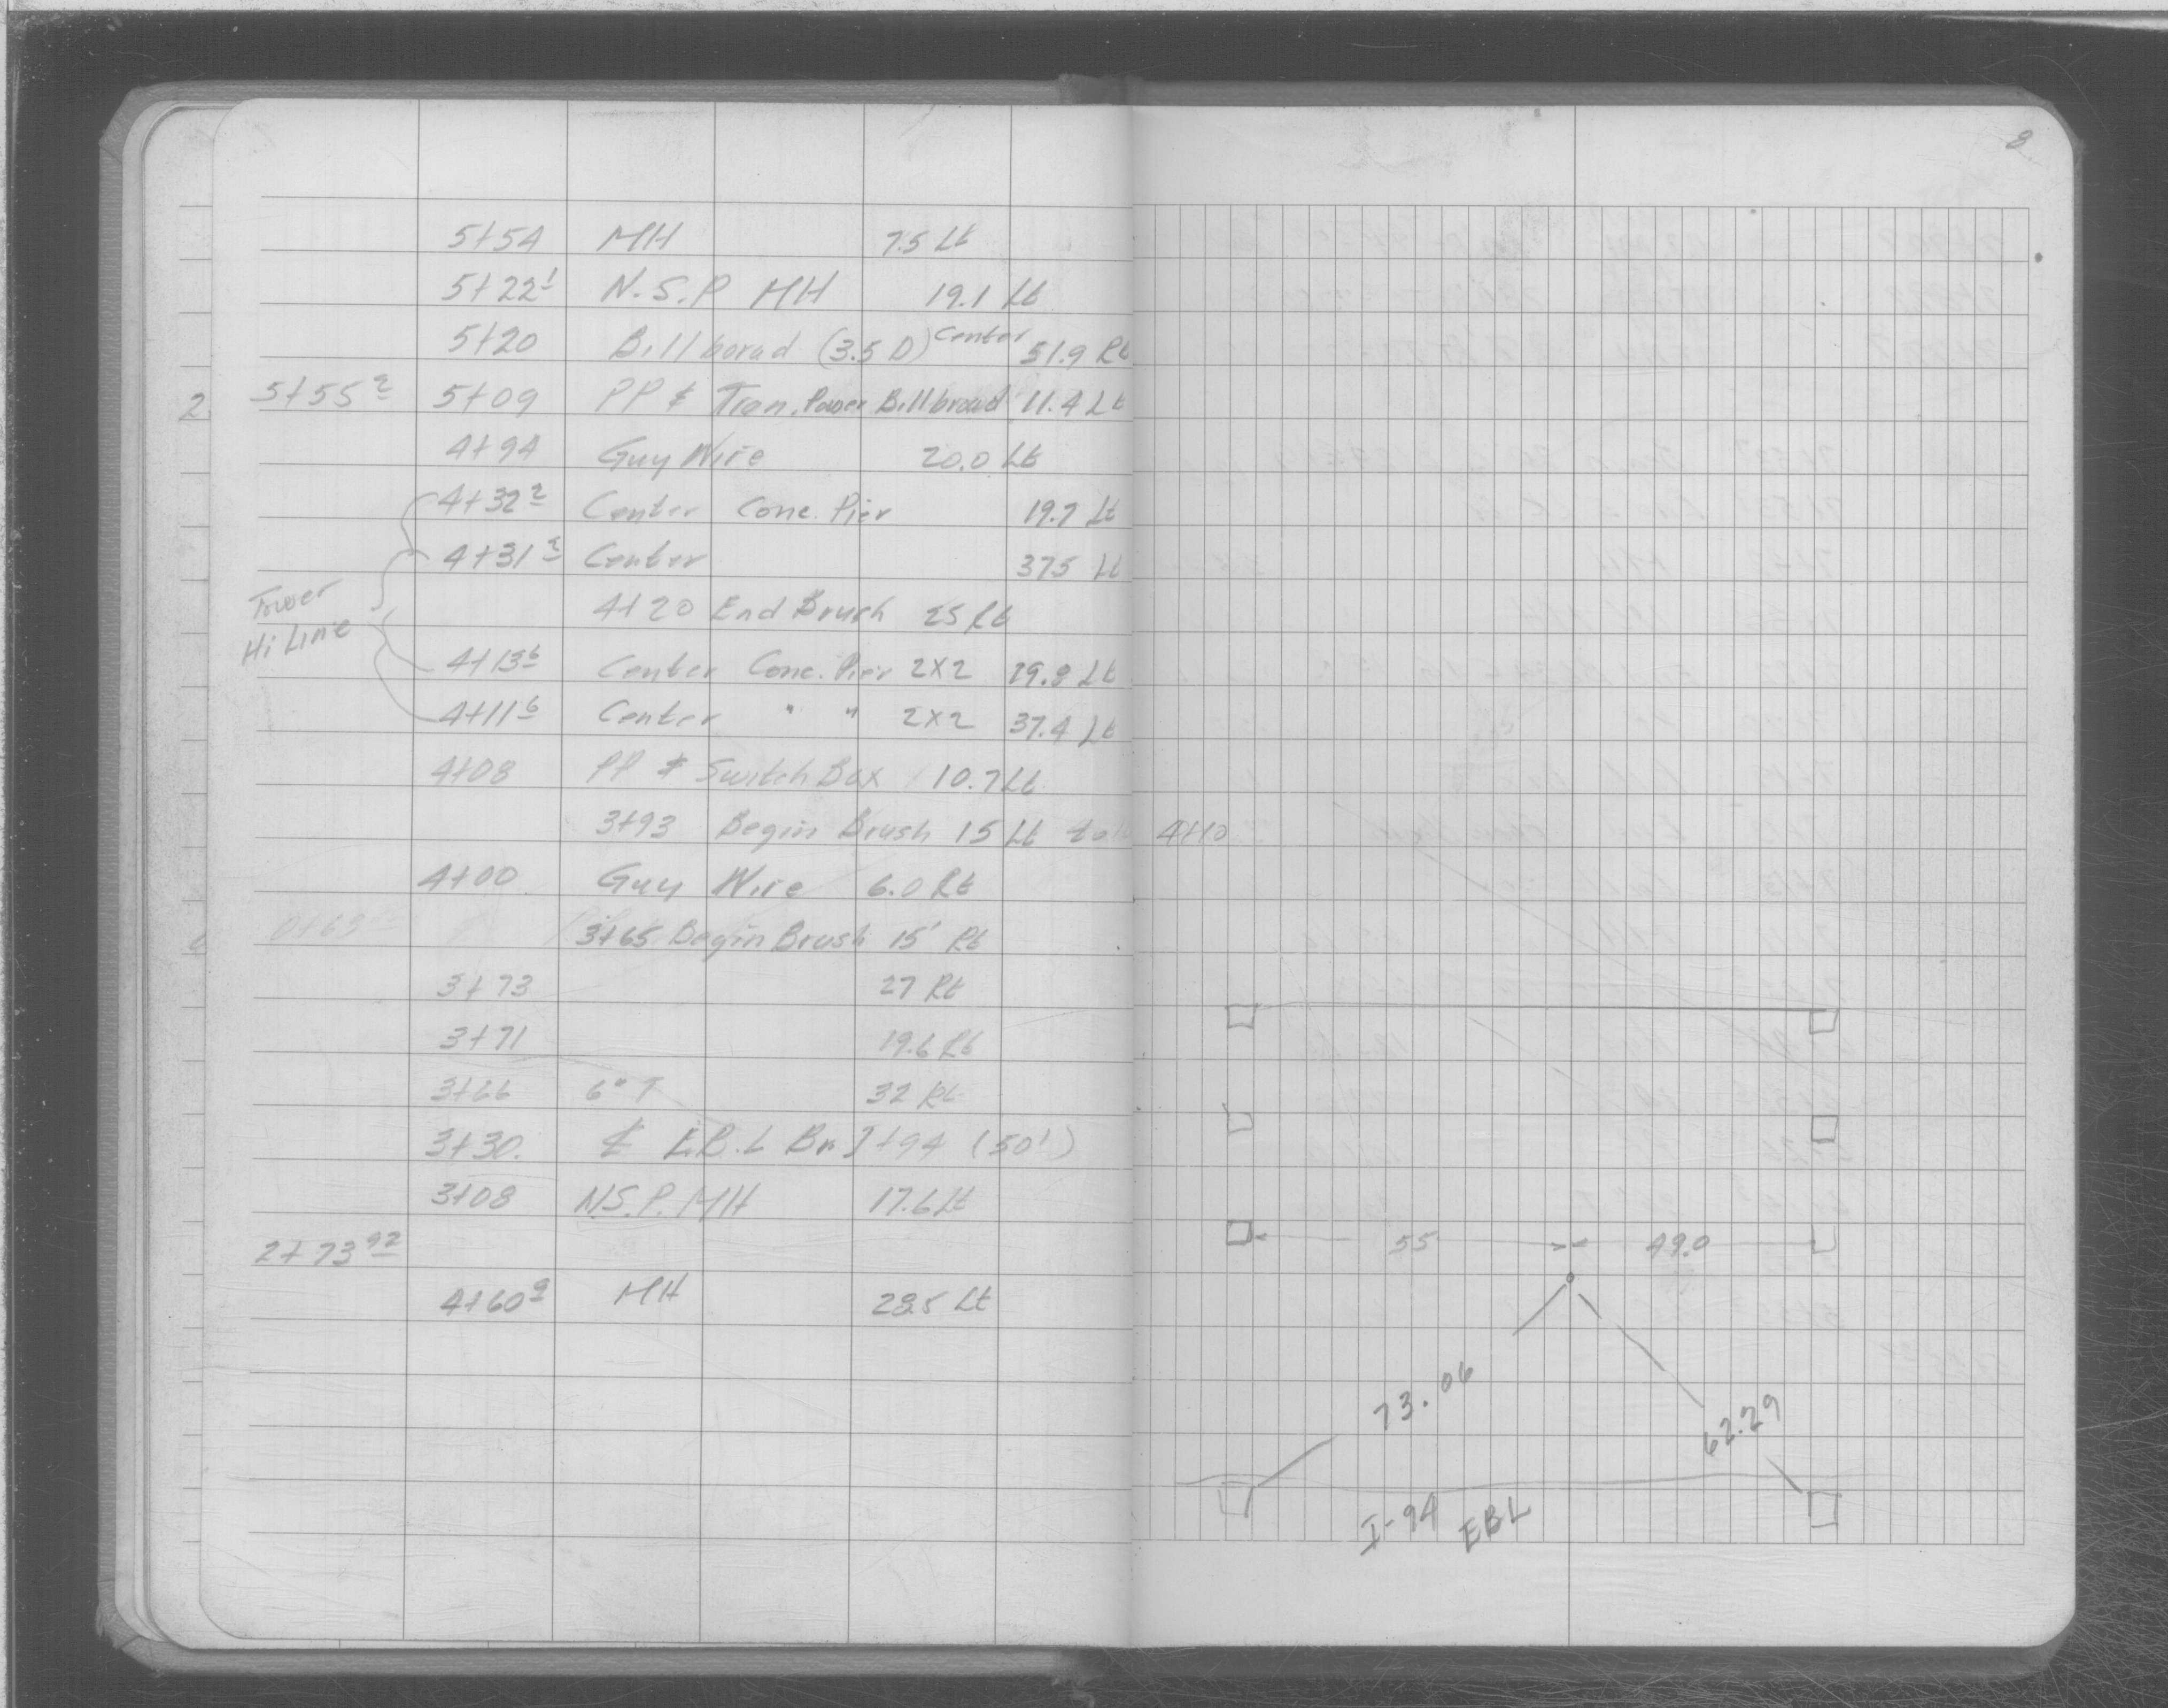 8
5+54 MH 7.5 Lt
5+22¹ N.S.P MH 19.1 Lt
5+20 Billborad (3.5 D) Center 51.9 Rt
2 5+55² 5+09 PP & Tran. Power Billbroad 11.4 Lt
4+94 Guy Wire 20.0 Lt
4+32² Center Conc. Pier 19.7 Lt
4+31² Center 37.5 Lt
Tower
4+20 End Brush 25 Rt
Hi Line
4+13⁶ Center Conc. Pier 2X2 19.8 Lt
4+11⁶ Center " " 2X2 37.4 Lt
4+08 PP & Switch Box 10.7 Lt
3+93 Begin Brush 15 Lt to 4+10
4+00 Guy Wire 6.0 Rt
0+63 3+65 Begin Brush 15' Rt
3+73 27 Rt
3+71 19.6 Rt
3+66 6" T 32 Rt
3+30. ℄ E.B.L Br. I+94 (50')
3+08 N.S.P. MH 17.6 Lt
2+73⁹²
4+60⁹ MH 28.5 Lt
55 49.0
73.06
62.29
I-94 EBL